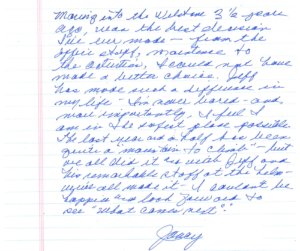 Moving into the Welstone 3 ½ years
ago, was the best decision
I've ever made - from the
office staff, maintenance to
the activities, I could not have
made a better choice. Jeff
has made such a difference in
my life - I'm never bored - and,
more importantly, I feel I
am in the safest place possible.
The last year and a half has been
quite a "mountain to climb" - but
we all did it - with Jeff and
his remarkable staff at the helm -
we all made it - I couldn't be
happier - look forward to
see "what comes next".